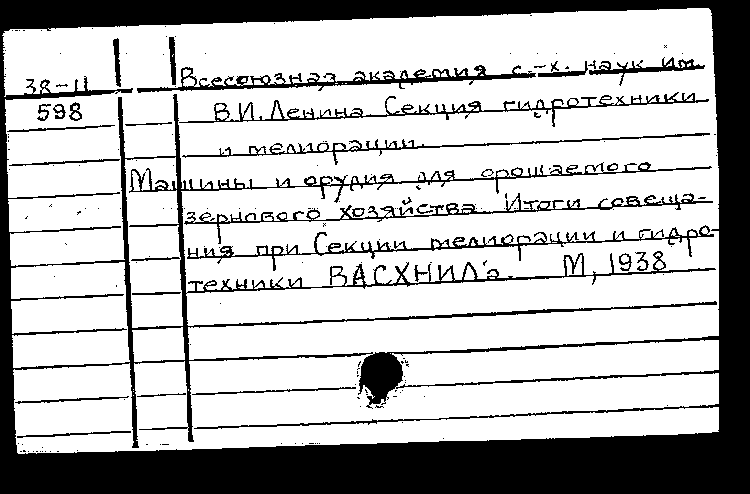 38-11 Всесоюзная академия с.-х. наук им.
598 В.И. Ленина. Секция гидротехники
и мелиорации.
Машины и орудия для орошаемого
зернового хозяйства. Итоги совеща-
ния при Секции мелиорации и гидро-
техники ВАСХНИЛ'а. М, 1938